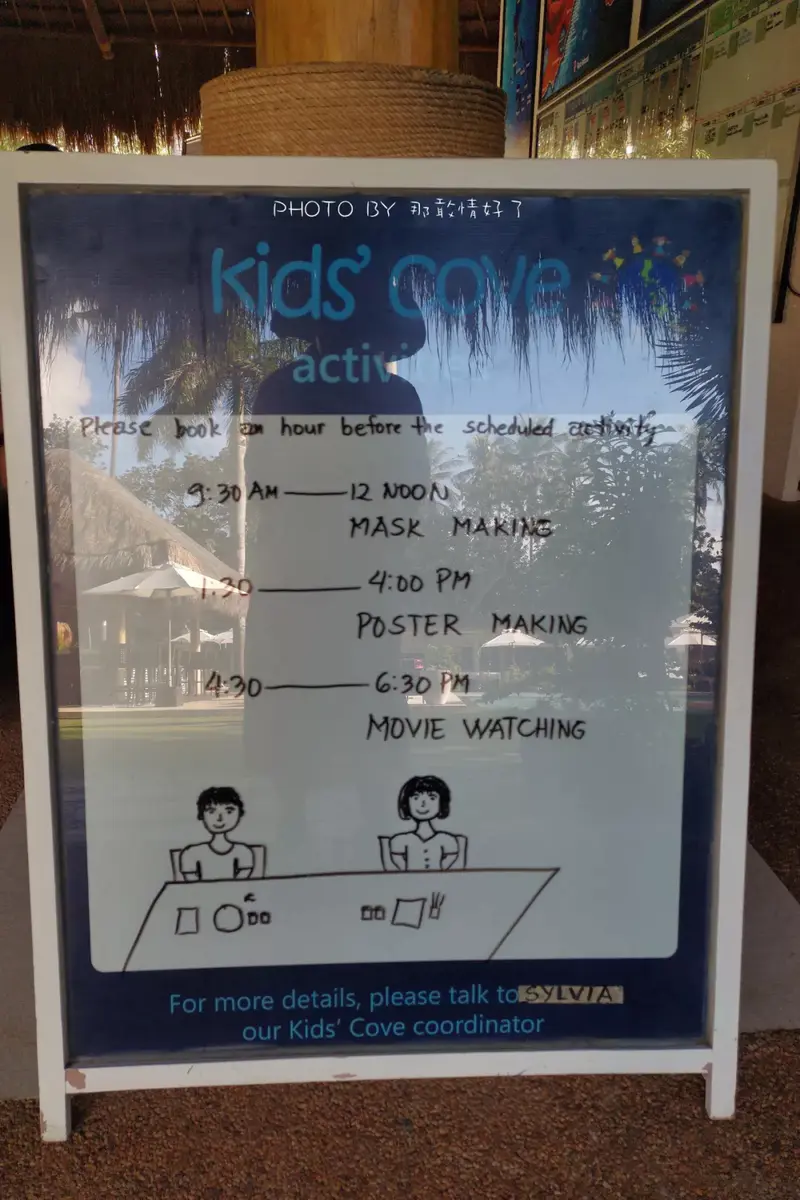 PHOTO BY 那敢情好了
kids' cove
activities
Please book an hour before the scheduled activity
9:30 AM — 12 NOON
MASK MAKING
1:30 — 4:00 PM
POSTER MAKING
4:30 — 6:30 PM
MOVIE WATCHING
For more details, please talk to SYLVIA
our Kids' Cove coordinator